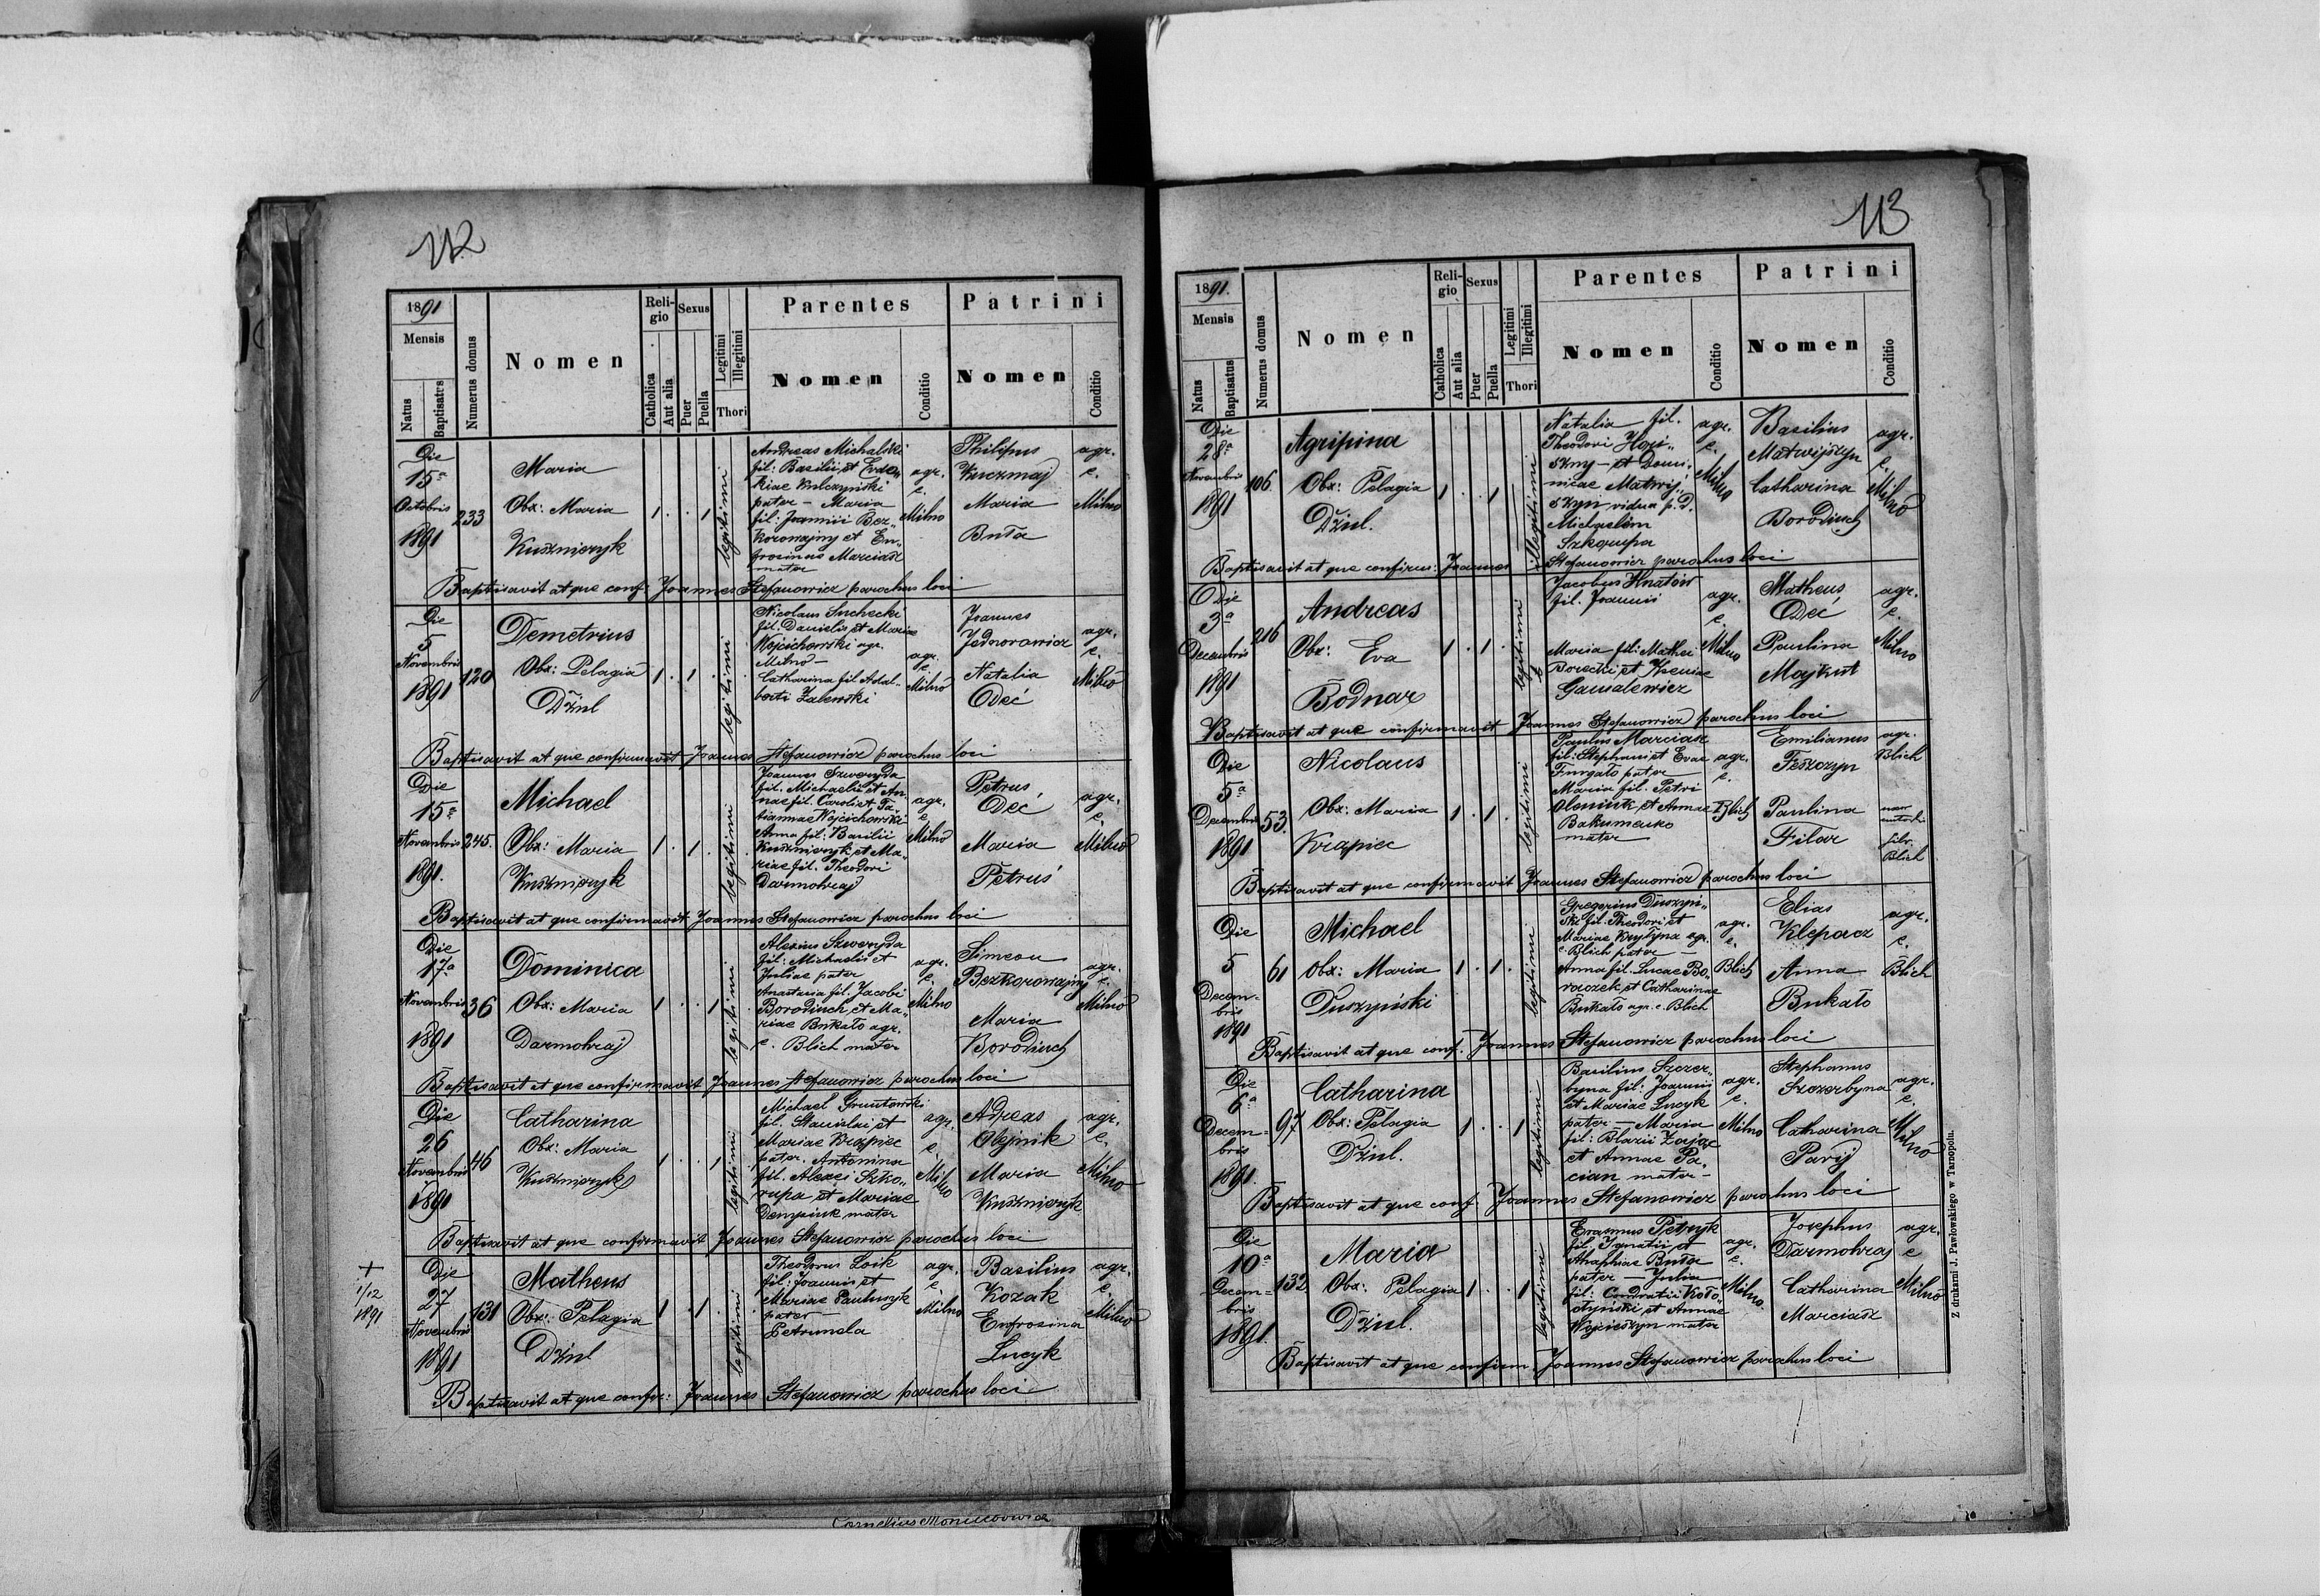 112
1891
Mensis
Natus
Baptisatrs
Numerus domus
Nomen
Religio
Catholica
Aut alia
Sexus
Puer
Puella
Legitimi
Illegitimi
Thori
Parentes
Nomen
Conditio
Patrini
Nomen
Conditio
Die
15a
Octobris
1891
233
Maria
Obx: Maria
Kuszniryk
1 . . 1
legitimi
Andreas Michalski
fil: Basilii et Evdo„
kiae Kulczyński
pater – Maria
fil: Joannii Bez„
korowajny et Eu„
frosinae Marciasz
mater
agr.
c.
Milno
Philipus
Kuczmaj
Maria
Buła
agr.
c.
Milno
Baptisavit atque conf: Joannes Stefanowicz parochus loci
Die
5
Novembris
1891
120
Demetrius
Obx: Pelagia
Dziul
1 . 1 .
legitimi
Nicolaus Suchecki
fil. Danielis et Mariae
Wojcichowski agr.
Milno –
Catharina fil Adal„
berti Zalewski
agr.
c.
Milno
Joannes
Jednorowicz
Natalia
Deć
agr.
c.
Milno
Baptisavit at que confirmavit Joannes Stefanowicz parochus loci
Die
15a
Novembris
1891.
245.
Michael
Obx: Maria
Kuszniryk
1 . 1 .
legitimi
Joannes Szweryda
fil. Michaelis et An„
nae fil. Caroli et Ta„
tiannae Wojcichowski
Anna fil: Basilii
Kuszniryk et Ma„
riae fil. Theodori
Darmohraj
agr.
c.
Milno
Petrus
Deć
Maria
Petruś
agr.
c.
Milno
Baptisavit at que confirmavit Joannes Stefanowicz parochus loci
Die
17a
Novembris
1891
36
Dominica
Obx: Maria
Darmohraj
1 . . 1
legitimi
Alexius Szweryda
fil: Michaelis et
Juliae pater
Anastasia fil. Jacobi
Borodiuch et Ma„
riae Bukało agr.
c. Blich mater
agr.
c.
Milno
Simeon
Bezkorowajny
Maria
Borodiuch
agr.
c.
Milno
Baptisavit at que confirmavit Joannes Stefanowicz parochus loci
Die
26
Novembris
1891
46
Catharina
Obx: Maria
Kuszniryk
1 . . 1
legitimi
Michael Gruntowski
fil. Stanislai et
Mariae Krapiec
pater. Antonina
fil. Alexei Szko„
rupa et Mariae
Dempiuk mater
agr.
c.
Milno
Adreas
Olejnik
Maria
Kuszniryk
agr.
c.
Milno
Baptisavit at que confirmavit Joannes Stefanowicz parochus loci
+
1/12
1891
Die
27
Novembris
1891
131
Matheus
Obx: Pelagia
Dziul
1 . 1 .
legitimi
Theodorus Loik
fil: Joannis et
Mariae
pater
Petrunela
agr.
c.
Milno
Basilius
Kozak
Eufrosina
Lucyk
agr.
c.
Milno
Baptisavit at que confir: Joannes Stefanowicz parochus loci
Cornelius
113
1891.
Mensis
Natus
Baptisatus
Numerus domus
Nomen
Religio
Catholica
Aut alia
Sexus
Puer
Puella
Legitimi
Illegitimi
Thori
Parentes
Nomen
Conditio
Patrini
Nomen
Conditio
Die
28a
Novembris
1891
106
Agripina
Obx: Pelagia
Dziul.
1 . . 1
illegitimi
Natalia fil.
Theodori
szny – et Domi„
nicae Matwij„
szyn vidua p.d.
Michaelem
Szkorupa
agr.
c.
Milno
Basilius
Matwijszyn
Catharina
Borodiuch
agr.
c.
Milno
Baptisavit at que confirm: Joannes Stefanowicz parochus loci
Die
3a
Decembris
1891
216
Andreas
Obx: Eva
Bodnar
1 . 1 .
legitimi
Jacobus Hnatów
fil. Joannis
Maria fil: Mathei
Borecki et Xeniae
Gamalewicz
agr.
c.
Milno
Matheus
Deć
Paulina
Majkut
agr.
c.
Milno
Baptisavit at que confirmavit Joannes Stefanowicz parochus loci
Die
5a
Decembris
1891
53.
Nicolaus
Obx: Maria
Krapiec
1 . 1 .
legitimi
Paulus Marciasz
fil: Stephani et Evae
Furgało pater
Maria fil. Petri
Oleniuk et Annae
Bakumenko
mater
agr.
c.
Blich
Emilianus
Teszczyn
Paulina
Filar
agr.
Blich
Blich
Baptisavit at que confirmavit Joannes Stefanowicz parochus loci
Die
5
Decem=
bris
1891
61
Michael
Obx: Maria
Duszynski
1 . 1 .
legitimi
Gregorius Duszyń„
ski fil. Theodori et
Mariae Krystyna agr.
c. Blich pater –
Anna fil. Lucae Bo„
raczek et Catharinae
Bukało agr. c. Blich
agr.
c.
Blich
Elias
Klepacz
Anna
Bukało
agr.
c.
Blich
Baptisavit at que conf. Joannes Stefanowicz parochus loci
Die
6a
Decem=
bris
1891.
97
Catharina
Obx: Pelagia
Dziul.
1 . . 1
legitimi
Basilius Szczer„
byna fil: Joannis
et Mariae Lucyk
pater – Maria
fil: Blarii Zając
et Annae Pa„
cian mater –
agr.
c.
Milno
Stephanus
Szczerbyna
Catharina
Paryj
agr.
c.
Milno
Baptisavit at que conf. Joannes Stefanowicz parochus loci
Die
10a
Decem=
bris
1891.
132.
Maria
Obx: Pelagia
Dziul.
1 . . 1
legitimi
Erasmus Petryk
fil. Ignatii et
Ahaphiae Buła
pater – Julia
fil: Condratii Koło„
dyński et Annae
Wojcieszyn mater
agr.
c.
Milno.
Josephus
Darmohraj
Catharina
Marciasz
agr.
c
Milno
Baptisavit at que confirm. Joannes Stefanowicz parochus loci
Z drukarni J. Pawłowskiego w Tarnopolu.